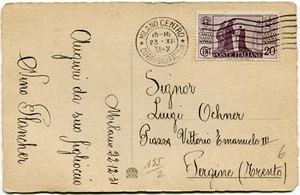 Auguri da suo figlioccio
Milano 22.12.31
MILANO CENTRO
15-16
23·XII
31-X
POSTE ITALIANE
20
Signor
Luigi Ochner
Piazza Vittorio Emanuele III
Pergine (Trento)
155
2
6